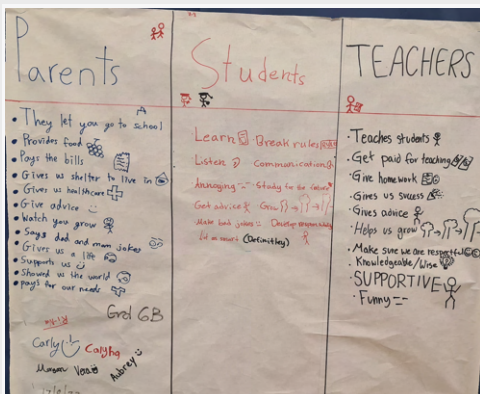 Parents
• They let you go to school
• Provides food
• Pays the bills
• Gives us shelter to live in
• Gives us healthcare
• Give advice
• Watch you grow
• Says dad and mom jokes
• Gives us a life
• Supports us
• Showed us the world
• pays for our needs
Grd 6B
Carly
Calyhq
Aubrey
Students
Learn · Break rules
Listen · Communication
Annoying - Study for the future
Get advice · Grow
Make bad jokes
(Definitley)
TEACHERS
· Teaches students
· Get paid for teaching
· Give homework
· Gives us success
· Gives advice
· Helps us grow
· Make sure we are respectful
· Knowledgeable/Wise
· SUPPORTIVE
· Funny